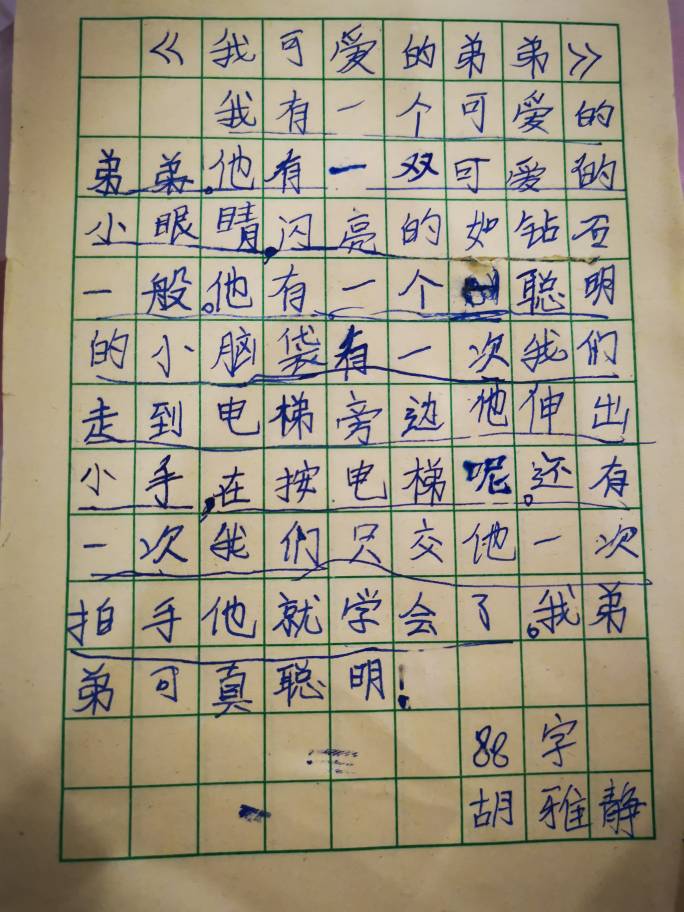 《我可爱的弟弟》
我有一个可爱的
弟弟。他有一双可爱的
小眼睛,闪亮的如钻石
一般。他有一个聪明
的小脑袋有一次我们
走到电梯旁边他伸出
小手,在按电梯呢。还有
一次我们只交他一次
拍手他就学会了。我弟
弟可真聪明!
88字
胡雅静